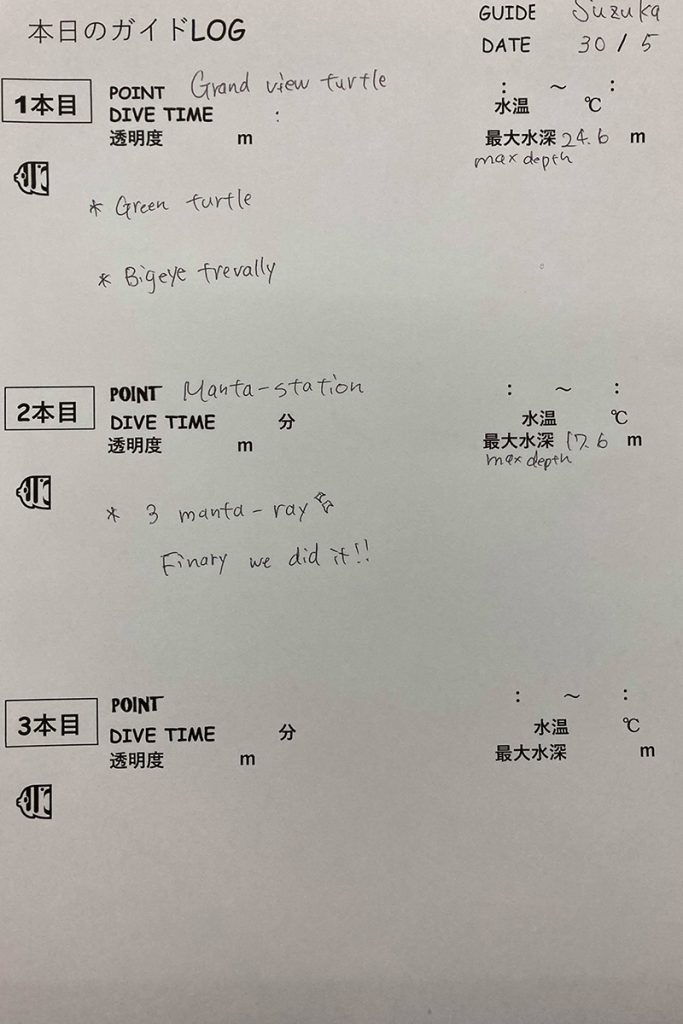 本日のガイドLOG
GUIDE Suzuka
DATE 30 / 5
1本目
POINT Grand view turtle
: ～ :
DIVE TIME :
水温 ℃
透明度 m
最大水深 24.6 m
max depth
* Green turtle
* Bigeye trevally
2本目
POINT Manta-station
: ～ :
DIVE TIME 分
水温 ℃
透明度 m
最大水深 17.6 m
max depth
* 3 manta-ray
Finary we did it!!
3本目
POINT
: ～ :
DIVE TIME 分
水温 ℃
透明度 m
最大水深 m